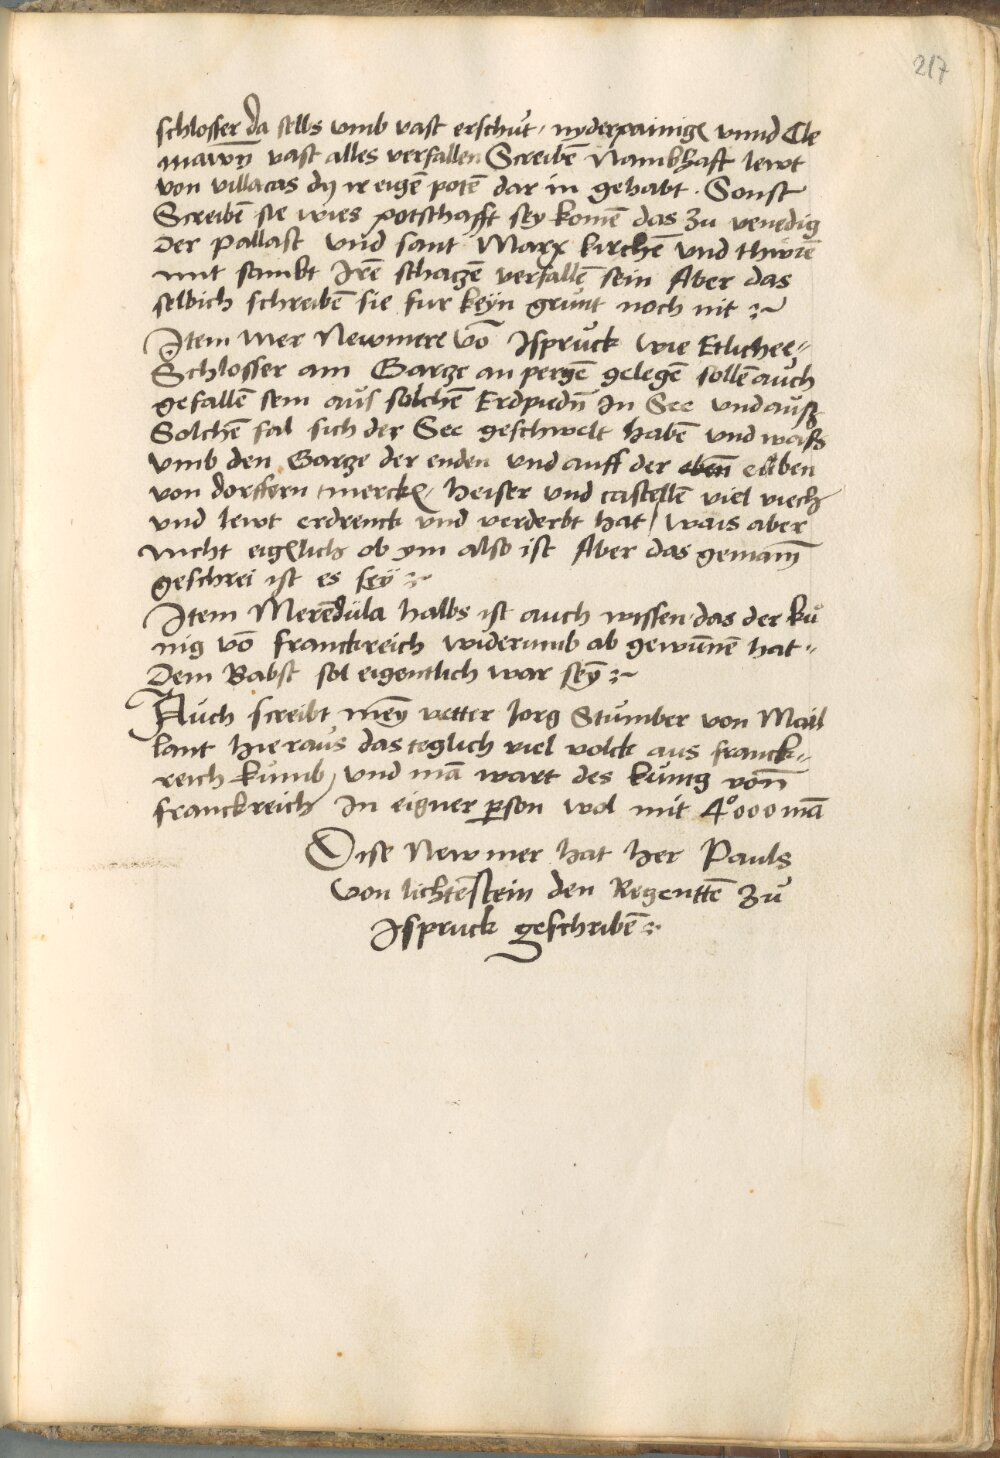 217
schlosser da selbs vmb vast erschut, nyderpainig vnnd Cle
mawn̄ vast alles verfallen Screibē Namkhafft lewt
von villacas dy ir eigē potē dar in gehabt. Sonst
Screibē sie wies potschafft sey komē das zu venedig
Der Pallast vnd sant Marx kirchē vnd thurē
mit sambt Irē schaczē verfallē sein Aber das
selbich schreibē sie fur keyn grunt noch nit
Item mer Newmere vō Ispruck wie Etlichee
Schlosser am Garze an pergē gelegē sollē auch
gefallē sein aus solchē Erdpiedn̄ In See vnd auß
Solchē fal sich der See geschwelt habē vnd waß
vmb den Garze der enden vnd auff der ebēn eben
von dorffern merckē, heiser vnd castellē viel viech
vnd lewt erdrenck vnd verderbt hat / wais aber
nicht eigēlich ob ym also ist Aber das gemain̄
geschrei ist es sey
Item Merēdula halbs ist auch wissen das der ku
nig vō franckreich widerumb ab gewunē hat
Dem Babst sol eigentlich war sey
Auch screibt mey vetter Jorg Stumber von Mail
lant hieraus das teglich viel volck aus franck
reich kumb, vnd mā wart des kunig von̄
franckreich In eigner person wol mit 4°000 mā
Dise Newmer hat her Pauls
von lichtēstein den Regenttē zu
Ispruck geschribē